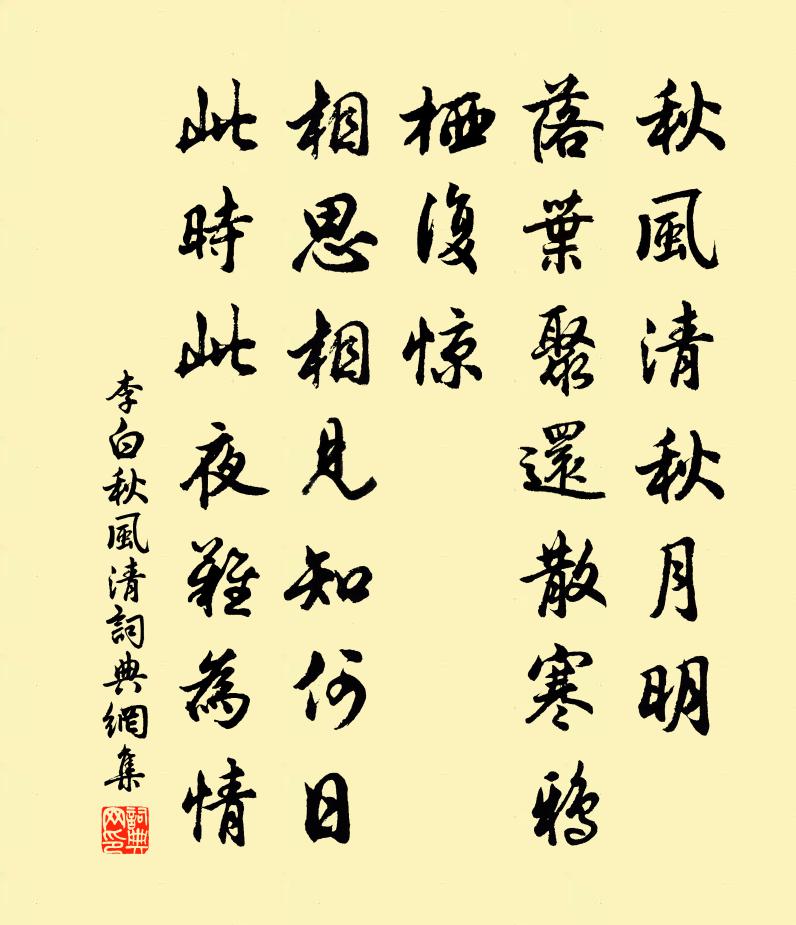 秋風清秋月明
落葉聚還散寒鴉
栖復惊
相思相見知何日
此時此夜難為情
李白秋風清詞典網集
詞典网印